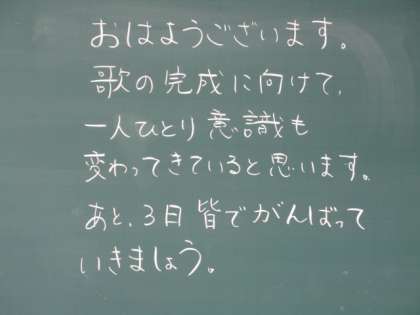 おはようございます。
歌の完成に向けて、
一人ひとり意識も
変わってきていると思います。
あと、3日皆でがんばって
いきましょう。